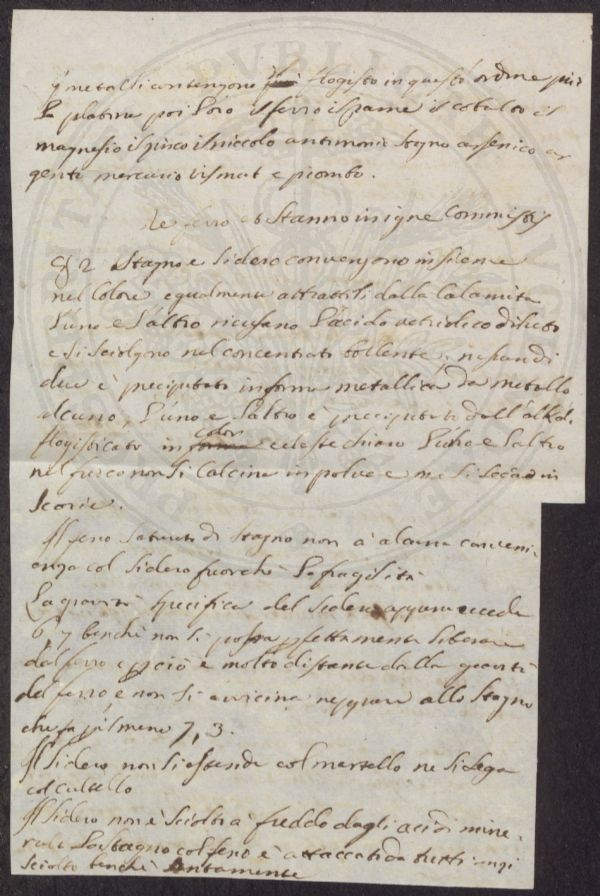 y metalli contengono flogisto in questo ordine più
la platina poi l'oro il ferro il rame il cobalto il
magnesio il zinco il niccolo antimonio stagno arsenico ar
gento mercurio bismut e piombo.
De ferro et Stanno in igne Commistis
§ 2 Stagno e Sidero convengono insieme
nel Colore egualmente attratti dalla Calamita
l'uno e l'altro ricusano l'acido vetriolico diluto
e si sciolgono nel concentrato bollente, nessun di
due è precipitato in forma metallica da metallo
alcuno, l'uno e l'altro è precipitato dall'alkal.
flogisticato in color celeste chiaro l'uno e l'altro
nel fuoco non si Calcina in polvere ma si in
Scorie.
Il ferro saturato di Stagno non à alcuna conveni,
enza col Sidero fuorchè la fragilità
La gravità Specifica del Sidero appena eccede
6, 7 benchè non si possa pfettamente liberare
dal ferro e pciò è molto distante dalla gravità
del ferro, e non si avvicina neppure allo Stagno
che fa p il meno 7, 3.
Il Sidero non si estende col martello ne si lega
col
Il Sidero non è Sciolto a freddo dagli acidi mine,
rali lo stagno col ferro è attaccato da tutti anzi
sciolto benchè lentamente